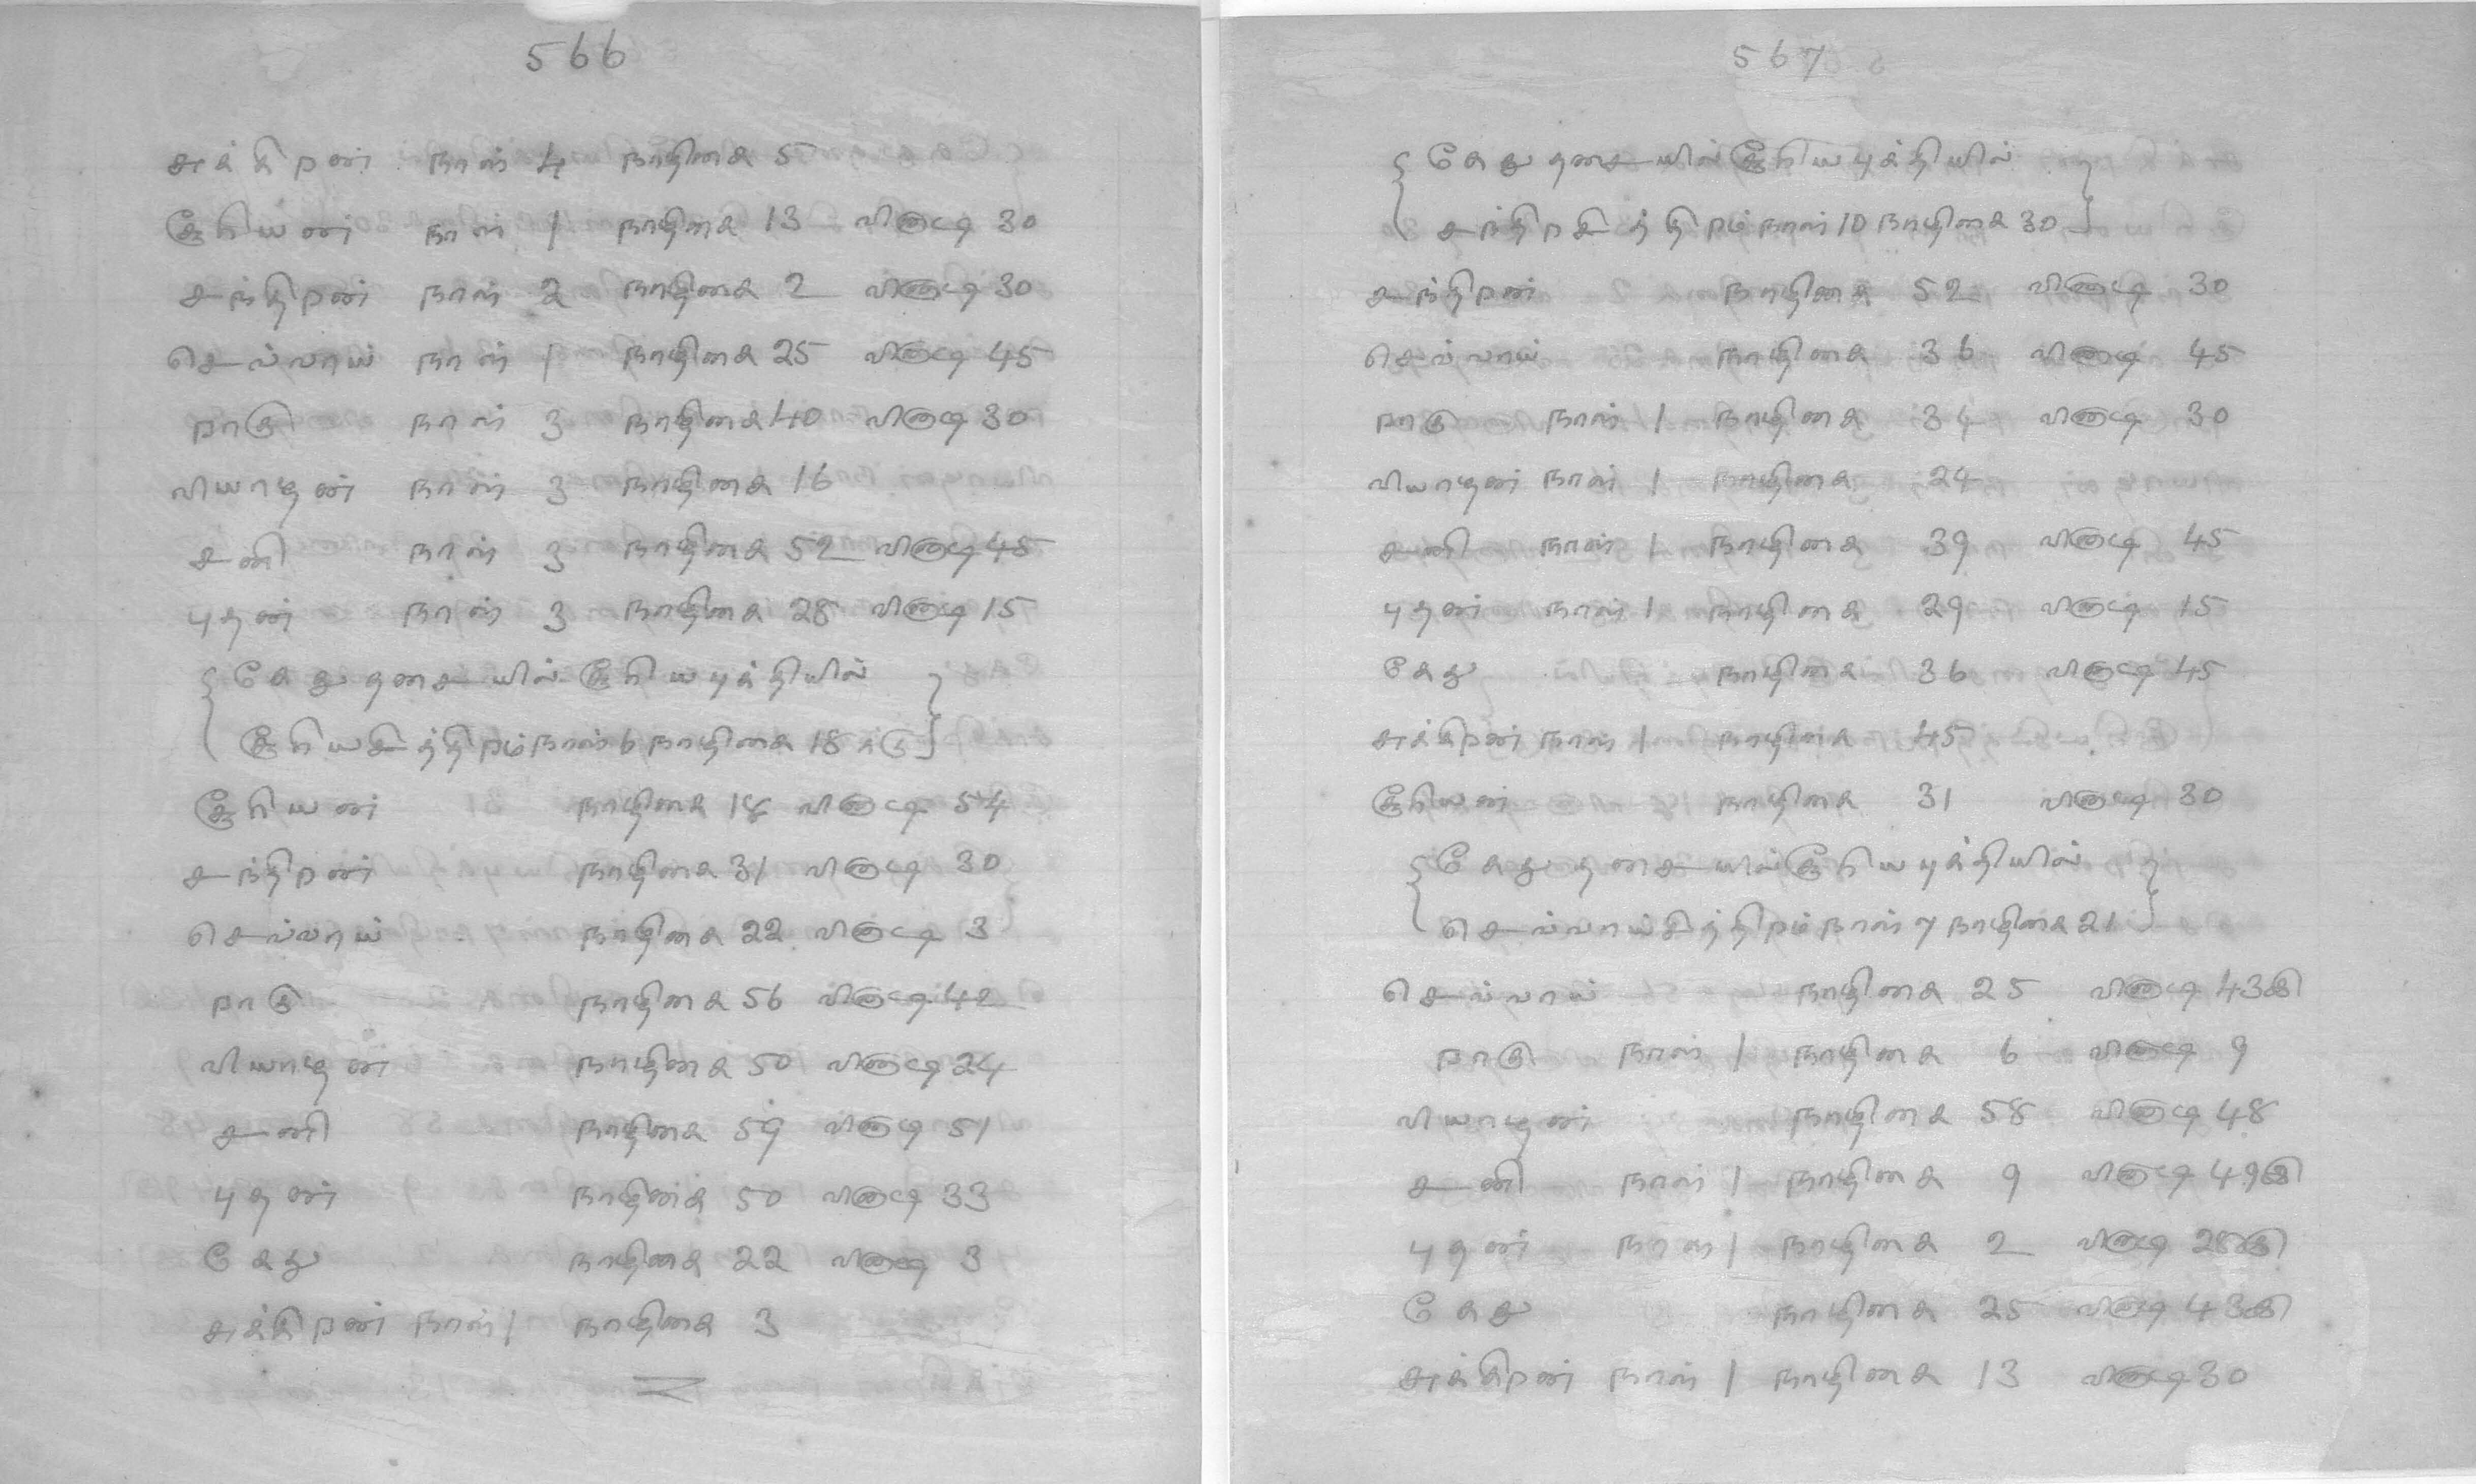 566
சுக்கிறன் நாள் 4 நாழிகை 5
சூரியன் நாள் 1 நாழிகை 13 விகுடி 30
சந்திறன் நாள் 2 நாழிகை 2 விகுடி 30
செவ்வாய் நாள் 1 நாழிகை 25 விகுடி 45
றாகு நாள் 3 நாழிகை 40 விகுடி 30
வியாழன் நாள் 3 நாழிகை 16
சனி நாள் 3 நாழிகை 52 விகுடி 45
புதன் நாள் 3 நாழிகை 28 விகுடி 15
{கேது தசையில் சூரியபுக்தியில்
சூரியசித்திறம் நாள் 6 நாழிகை 18 க்கு}
சூரியன் நாழிகை 18 விகுடி 54
சந்திறன் நாழிகை 31 விகுடி 30
செவ்வாய் நாழிகை 22 விகுடி 3
றாகு நாழிகை 56 விகுடி 42
வியாழன் நாழிகை 50 விகுடி 24
சனி நாழிகை 59 விகுடி 51
புதன் நாழிகை 50 விகுடி 33
கேது நாழிகை 22 விகுடி 3
சுக்கிறன் நாள் 1 நாழிகை 3
567
{கேது தசையில் சூரியபுக்தியில்
சந்திறசித்திறம் நாள் 10 நாழிகை 30}
சந்திறன் நாழிகை 52 விகுடி 30
செவ்வாய் நாழிகை 36 விகுடி 45
றாகு நாள் 1 நாழிகை 34 விகுடி 30
வியாழன் நாள் 1 நாழிகை 24
சனி நாள் 1 நாழிகை 39 விகுடி 45
புதன் நாள் 1 நாழிகை 29 விகுடி 15
கேது நாழிகை 36 விகுடி 45
சுக்கிறன் நாள் 1 நாழிகை 45
சூரியன் நாழிகை 31 விகுடி 30
{கேது தசையில் சூரியபுக்தியில்
செவ்வாய்சித்திறம் நாள் 7 நாழிகை 21}
செவ்வாய் நாழிகை 25 விகுடி 43
றாகு நாள் 1 நாழிகை 6 விகுடி 9
வியாழன் நாழிகை 58 விகுடி 48
சனி நாள் 1 நாழிகை 9 விகுடி 49
புதன் நாள் 1 நாழிகை 2 விகுடி 28
கேது நாழிகை 25 விகுடி 43
சுக்கிறன் நாள் 1 நாழிகை 13 விகுடி 30